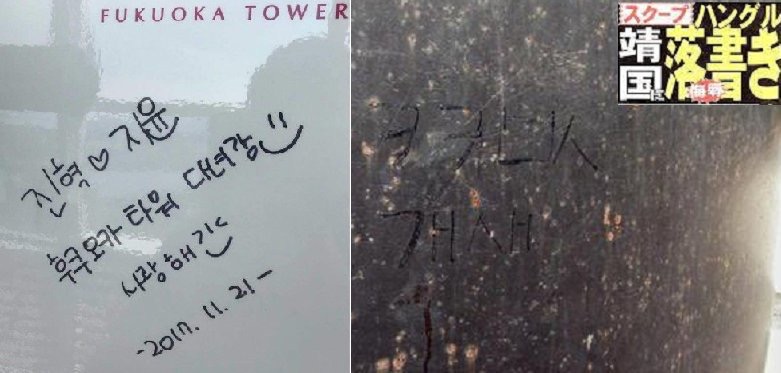 FUKUOKA TOWER
진혁♡지윤
후쿠오카 타워 다녀감
사랑해
-2017. 11. 21-
スクープ ハングル
靖国に落書き
侮辱
개새